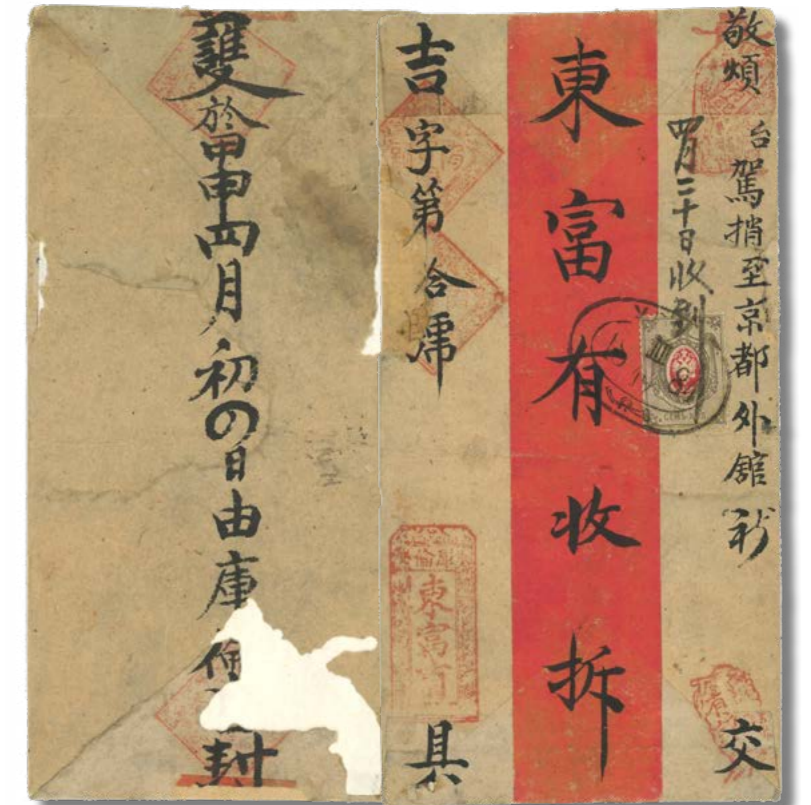 敬煩
台駕捎至京都外舘
交
四月二十日收到
東富有收拆
吉字第
具
東富有
護
於甲申四月初の日由庫
封